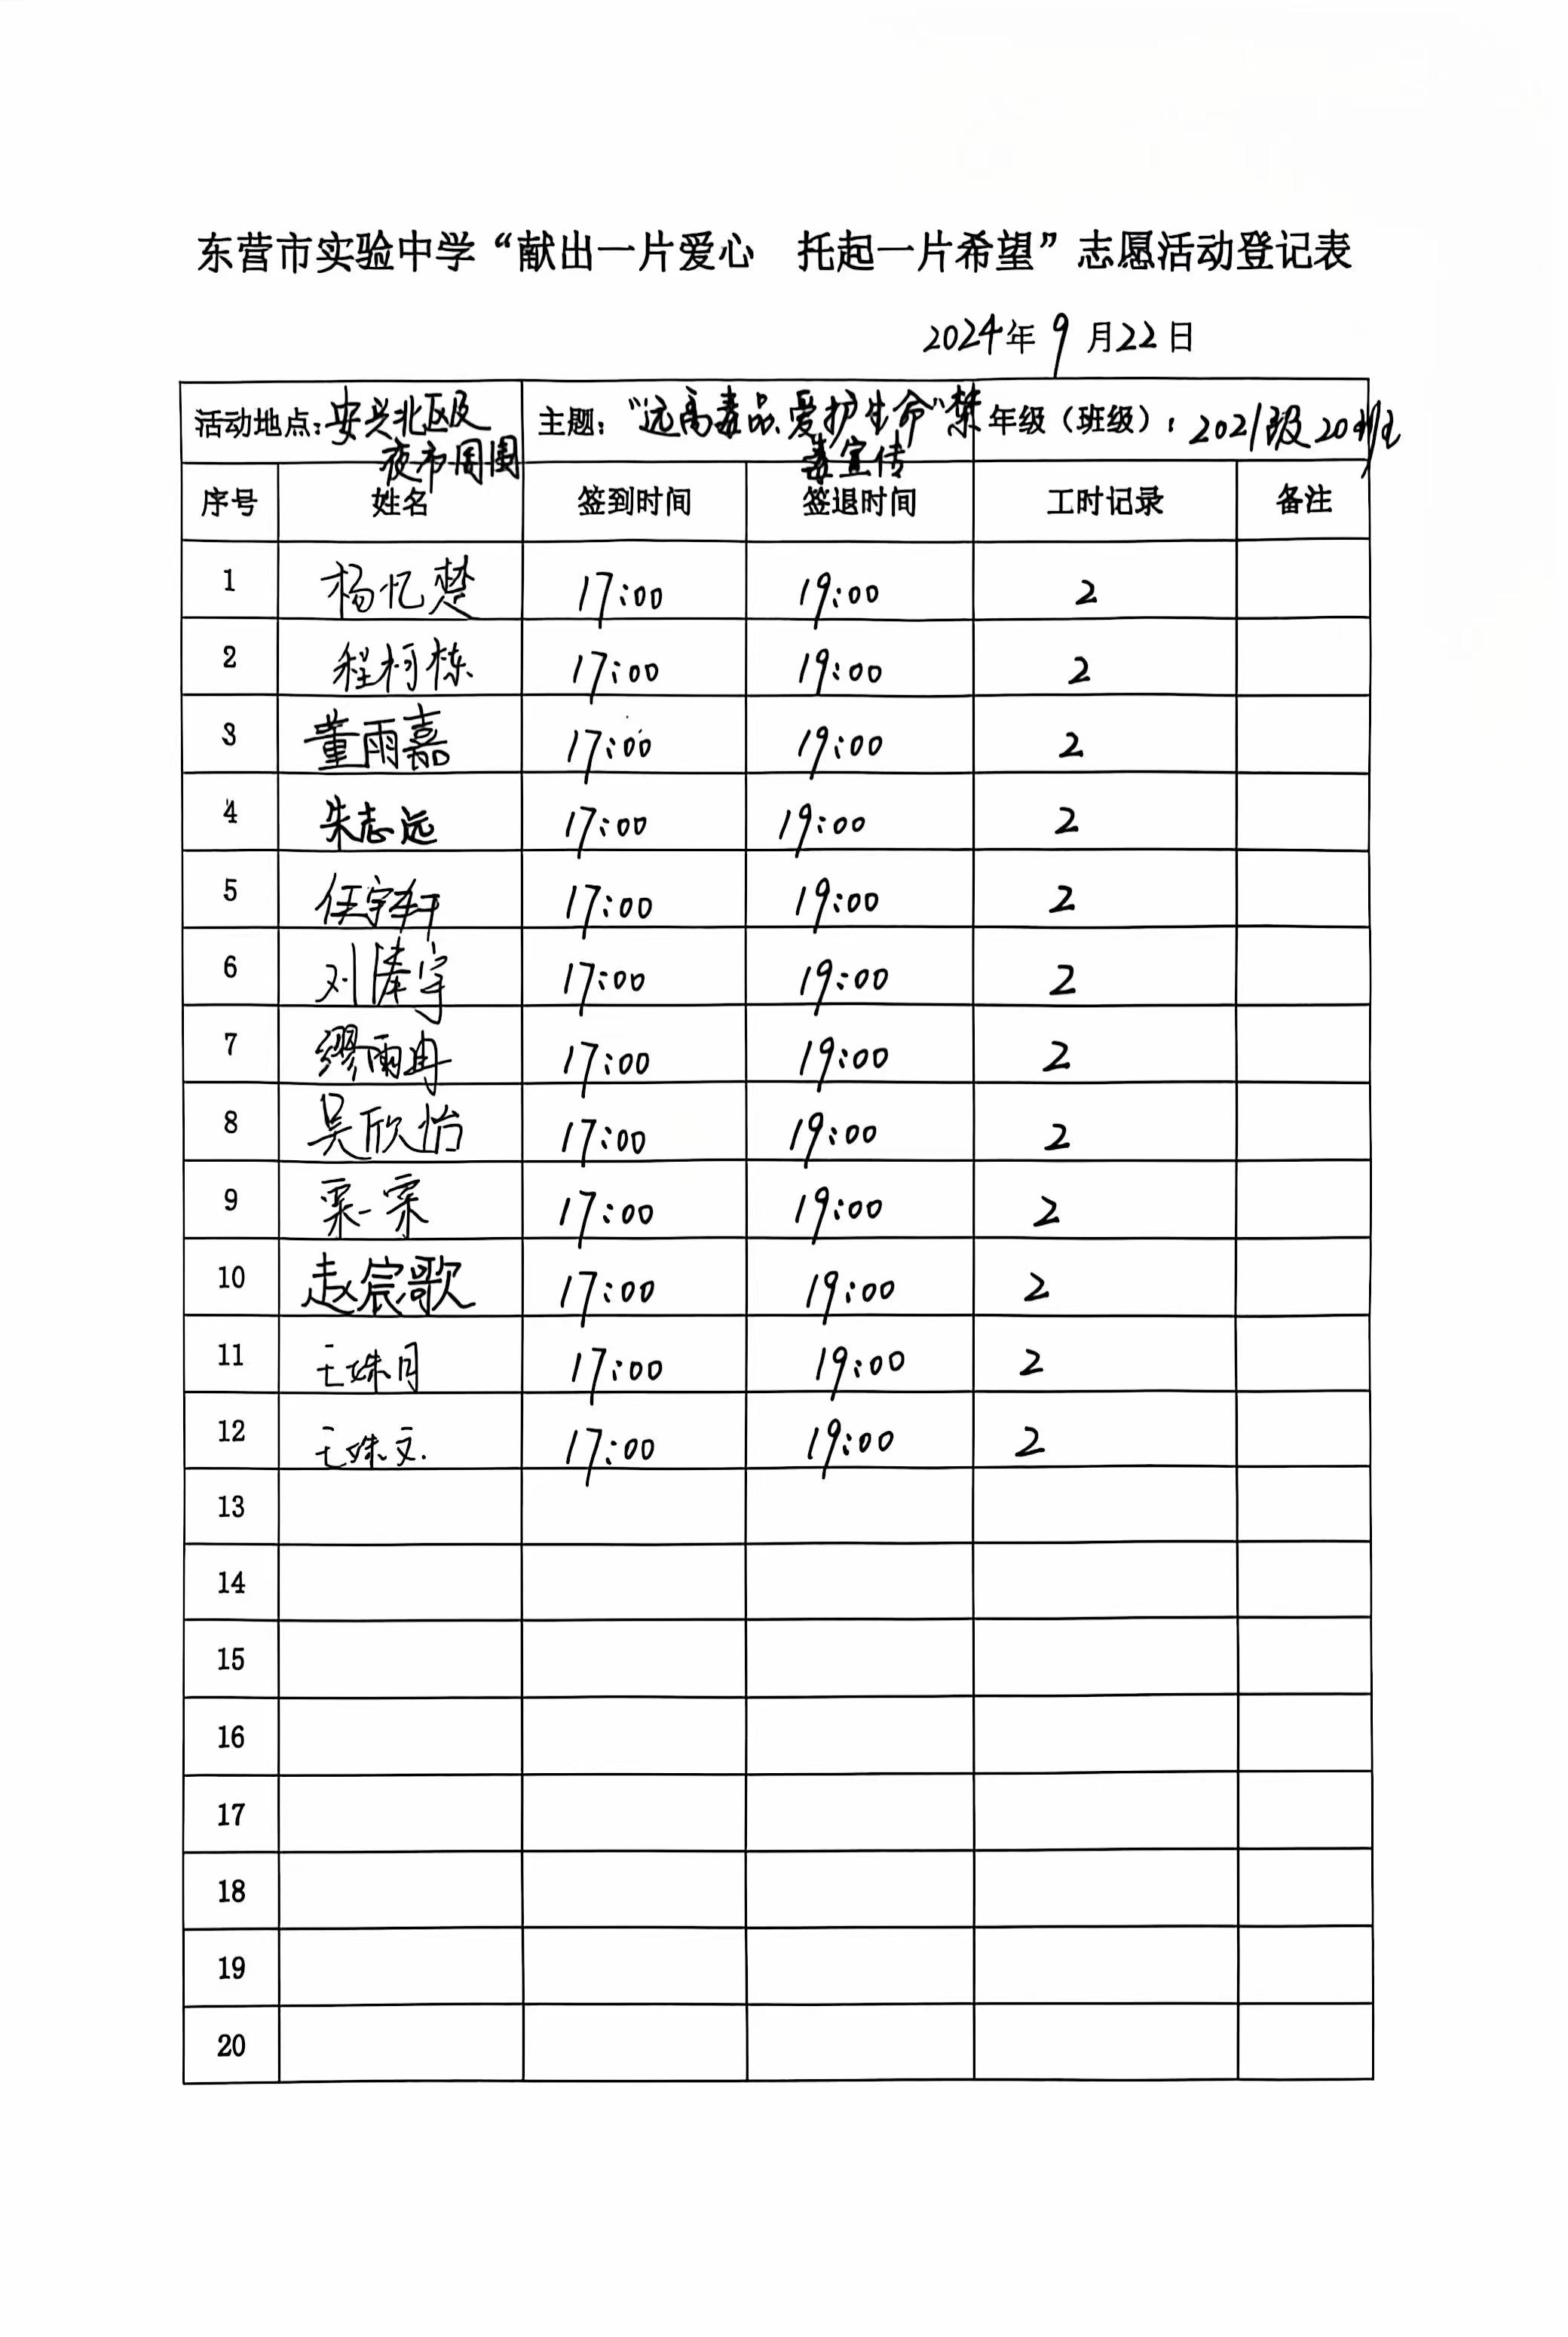 东营市实验中学“献出一片爱心　托起一片希望”志愿活动登记表
2024年9月22日
活动地点：安兴北区及夜市周围 主题：“远离毒品爱护生命”禁毒宣传 年级（班级）：2021级20班
序号 姓名 签到时间 签退时间 工时记录 备注
1 杨忆楚 17:00 19:00 2
2 程柯栋 17:00 19:00 2
3 董雨嘉 17:00 19:00 2
4 朱志远 17:00 19:00 2
5 任宇轩 17:00 19:00 2
6 刘宇 17:00 19:00 2
7 缪雨冉 17:00 19:00 2
8 吴欣怡 17:00 19:00 2
9 栾一宋 17:00 19:00 2
10 赵宸歌 17:00 19:00 2
11 王姝月 17:00 19:00 2
12 王姝文 17:00 19:00 2
13
14
15
16
17
18
19
20